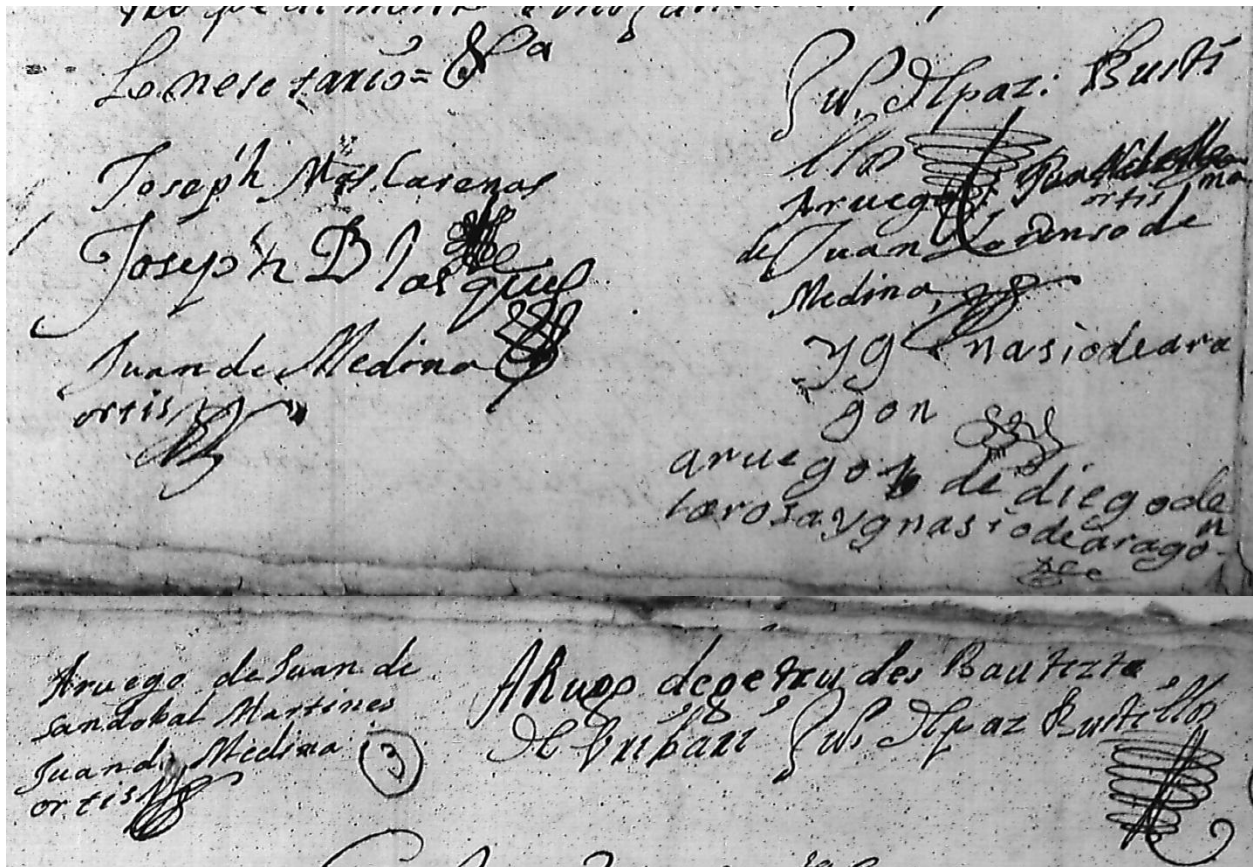 Lo nesesario = &a
Joseph Mascarenas
Joseph Blasques
Juan de Medina
ortis
Luis D paz: Busti
llos
Aruego
ortis
de Juan Lorenso de
Medina
ygnasio de ara
gon
aruego de diego de
la rosa ygnasio de aragon
Aruego de Juan de
Sandobal Martines
Juan de Medina
ortis
3
A Ruego de getrudes Bautizta
Luis D paz Bustillos